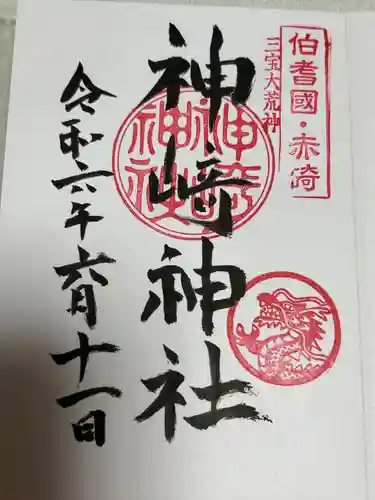 伯耆國・赤﨑
三宝大荒神
神﨑神社
神﨑神社
令和六年六月十一日